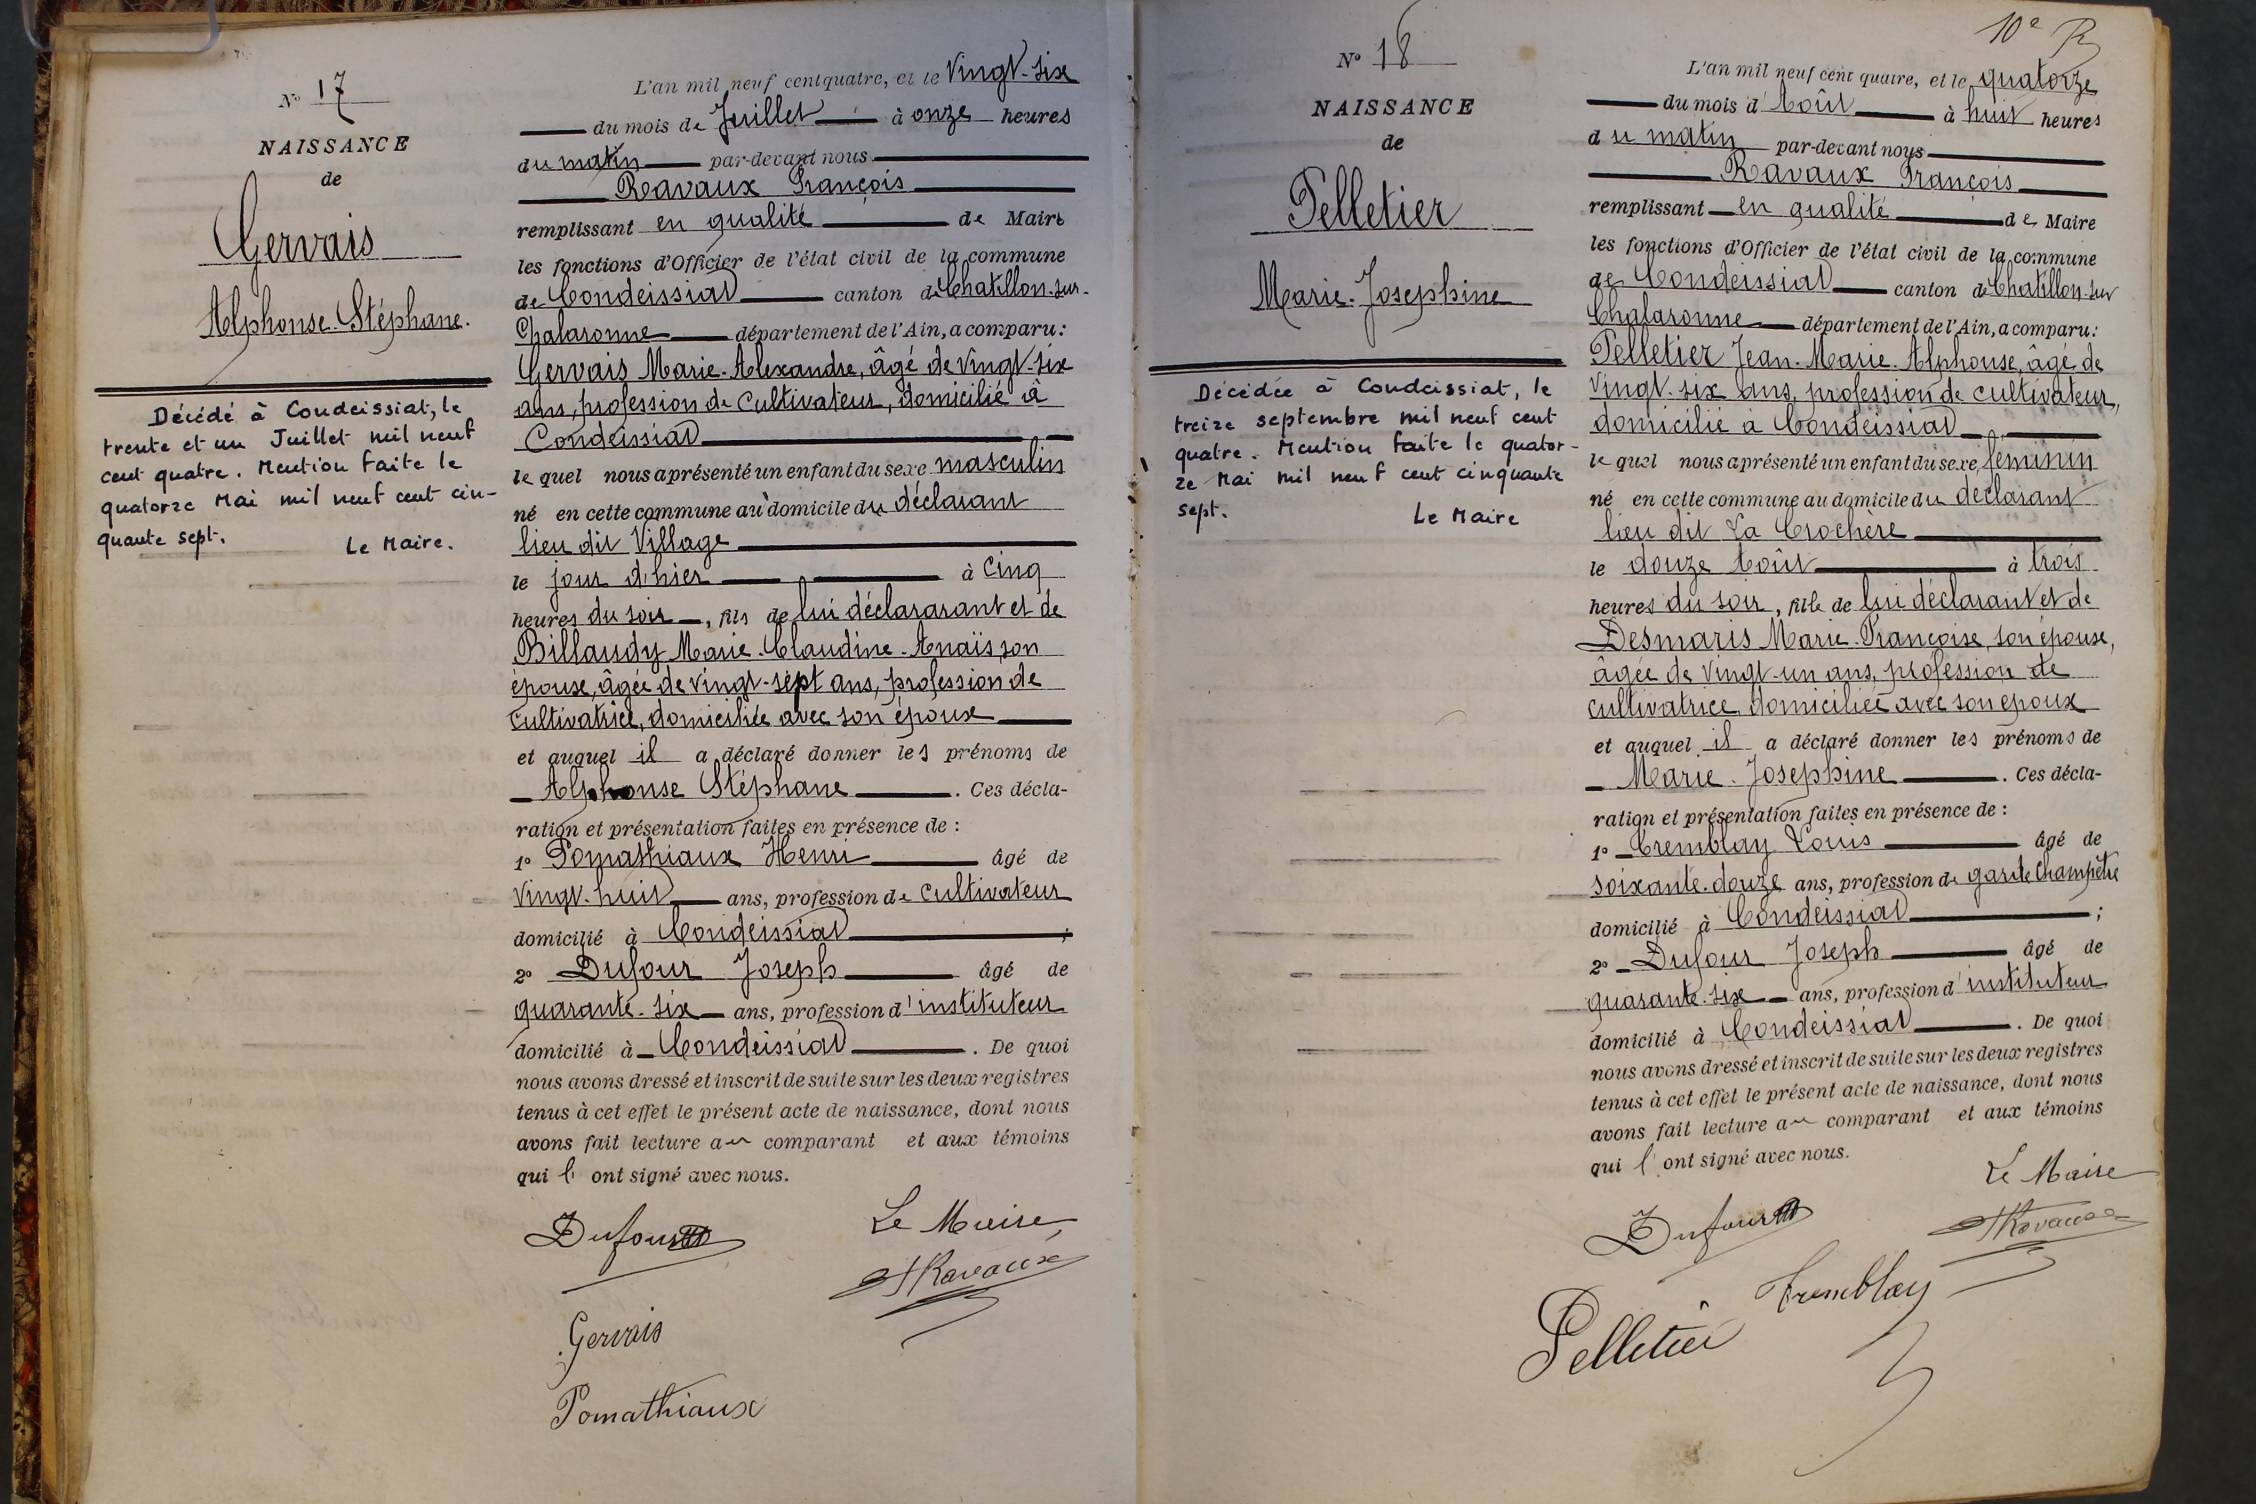 N° 17
NAISSANCE
de
Gervais
Alphonse-Stéphane.
Décédé à Condeissiat, le
trente et un Juillet mil neuf
cent quatre. Mention faite le
quatorze Mai mil neuf cent cin-
quante sept.
Le Maire.
L'an mil neuf cent quatre, et le Vingt-six
du mois de Juillet à onze heures
du matin par-devant nous
Ravaux François
remplissant en qualité de Maire
les fonctions d'Officier de l'état civil de la commune
de Condeissiat canton de Chatillon-sur-
Chalaronne département de l'Ain, a comparu:
Gervais Marie-Alexandre, âgé de vingt-six
ans, profession de cultivateur, domicilié à
Condeissiat
le quel nous a présenté un enfant du sexe masculin
né en cette commune au domicile du déclarant
lieu dit Village
le jour d'hier à cinq
heures du soir, fils de lui déclararant et de
Billaudy Marie-Claudine-Anaïs, son
épouse, âgée de vingt-sept ans, profession de
cultivatrice, domiciliée avec son époux
et auquel il a déclaré donner les prénoms de
Alphonse Stéphane. Ces décla-
ration et présentation faites en présence de :
1° Pomathiaux Henri âgé de
vingt-huit ans, profession de cultivateur
domicilié à Condeissiat ;
2° Dufour Joseph âgé de
quarante-six ans, profession d'instituteur
domicilié à Condeissiat. De quoi
nous avons dressé et inscrit de suite sur les deux registres
tenus à cet effet le présent acte de naissance, dont nous
avons fait lecture au comparant et aux témoins
qui l'ont signé avec nous.
Dufour
Le Maire
Ravaux
Gervais
Pomathiaux
10e R
N° 18
NAISSANCE
de
Pelletier
Marie-Josephine
Décédée à Condeissiat, le
treize septembre mil neuf cent
quatre. Mention faite le quator-
ze Mai mil neuf cent cinquante
sept.
Le Maire
L'an mil neuf cent quatre, et le quatorze
du mois d'Août à huit heures
du matin par-devant nous
Ravaux François
remplissant en qualité de Maire
les fonctions d'Officier de l'état civil de la commune
de Condeissiat canton de Chatillon-sur
Chalaronne département de l'Ain, a comparu:
Pelletier Jean-Marie-Alphonse, âgé de
vingt-six ans, profession de cultivateur,
domicilié à Condeissiat
le quel nous a présenté un enfant du sexe féminin
né en cette commune au domicile du déclarant
lieu dit La Crochère
le douze Août à trois
heures du soir, fille de lui déclarant et de
Desmaris Marie-Françoise, son épouse,
âgée de vingt-un ans, profession de
cultivatrice, domiciliée avec son époux
et auquel il a déclaré donner les prénoms de
Marie-Josephine. Ces décla-
ration et présentation faites en présence de :
1° Tremblay Louis âgé de
soixante-douze ans, profession de garde Champêtre
domicilié à Condeissiat ;
2° Dufour Joseph âgé de
quarante-six ans, profession d'instituteur
domicilié à Condeissiat. De quoi
nous avons dressé et inscrit de suite sur les deux registres
tenus à cet effet le présent acte de naissance, dont nous
avons fait lecture au comparant et aux témoins
qui l'ont signé avec nous.
Le Maire
Dufour
Ravaux
Tremblay
Pelletier